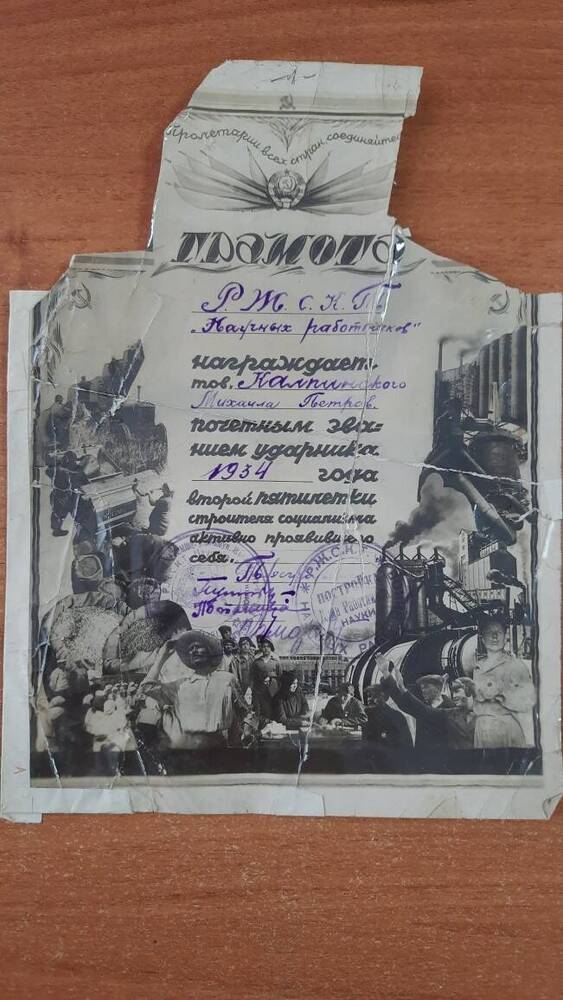 Пролетарии всех стран, соединяйтесь
ГРАМОТА
Р.Ж.С.К.Т.
„Научных работников"
награждает
тов. Калпинского
Михаила Петров.
почетным зва=
нием ударника
1934 года
второй пятилетки
строителя социализма
активно проявившего
себя.
Р.Ж.С.К.
ПОСТРОЙКОМ
НАУКИ